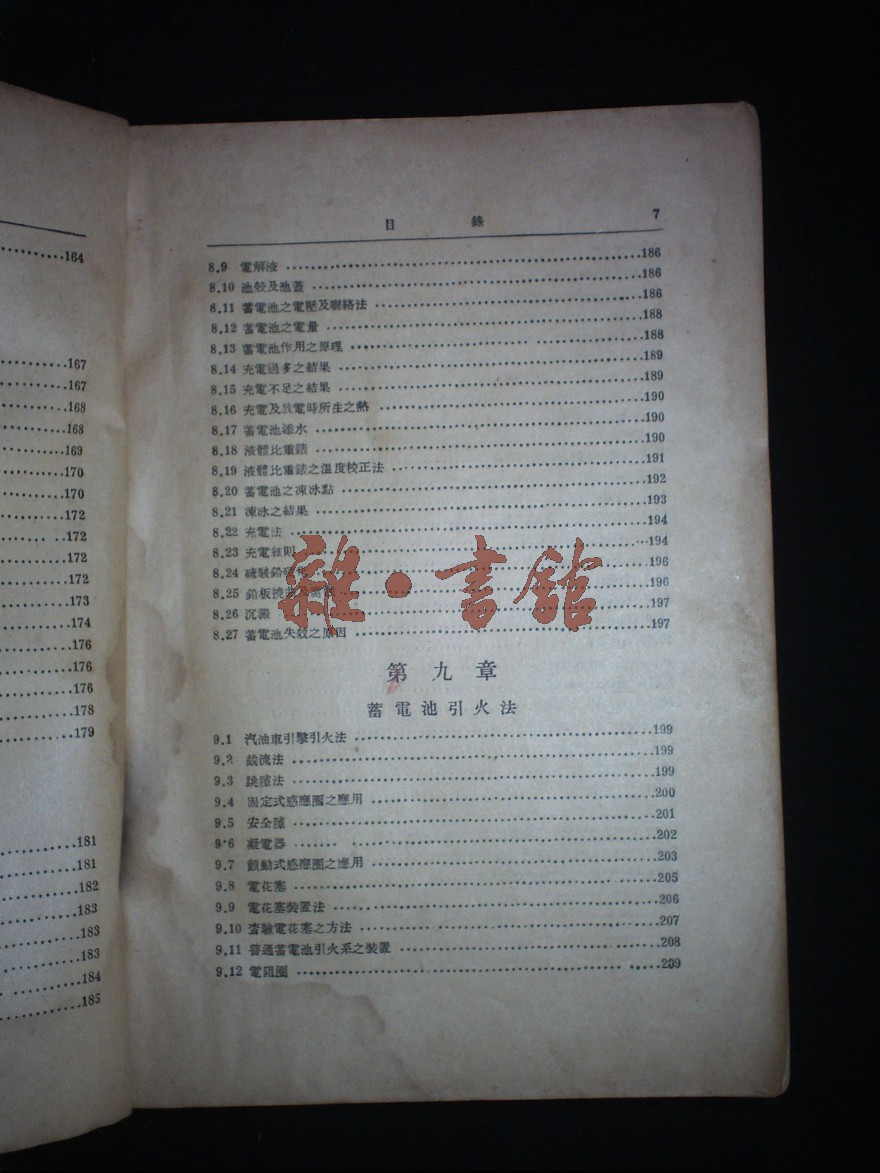 164
167
167
168
168
169
170
170
172
172
172
172
173
174
176
176
176
178
179
181
181
182
183
183
183
184
185
目錄 7
8.9 電解液 186
8.10 池殼及池蓋 186
8.11 蓄電池之電壓及聯絡法 186
8.12 蓄電池之電量 188
8.13 蓄電池作用之原理 188
8.14 充電過多之結果 189
8.15 充電不足之結果 189
8.16 充電及放電時所生之熱 190
8.17 蓄電池添水 190
8.18 液體比重錶 190
8.19 液體比重錶之溫度校正法 191
8.20 蓄電池之凍冰點 192
8.21 凍冰之結果 193
8.22 充電法 194
8.23 充電細則 194
8.24 硫酸鉛 196
8.25 鉛板 196
8.26 沉澱 197
8.27 蓄電池失效之原因 197
雜·書館
第九章
蓄電池引火法
9.1 汽油車引擎引火法 199
9.2 截流法 199
9.3 跳隙法 199
9.4 固定式感應圈之應用 200
9.5 安全隙 201
9.6 凝電器 202
9.7 顫動式感應圈之應用 203
9.8 電花塞 205
9.9 電花塞裝置法 206
9.10 查驗電花塞之方法 207
9.11 普通蓄電池引火系之裝置 208
9.12 電阻圈 209